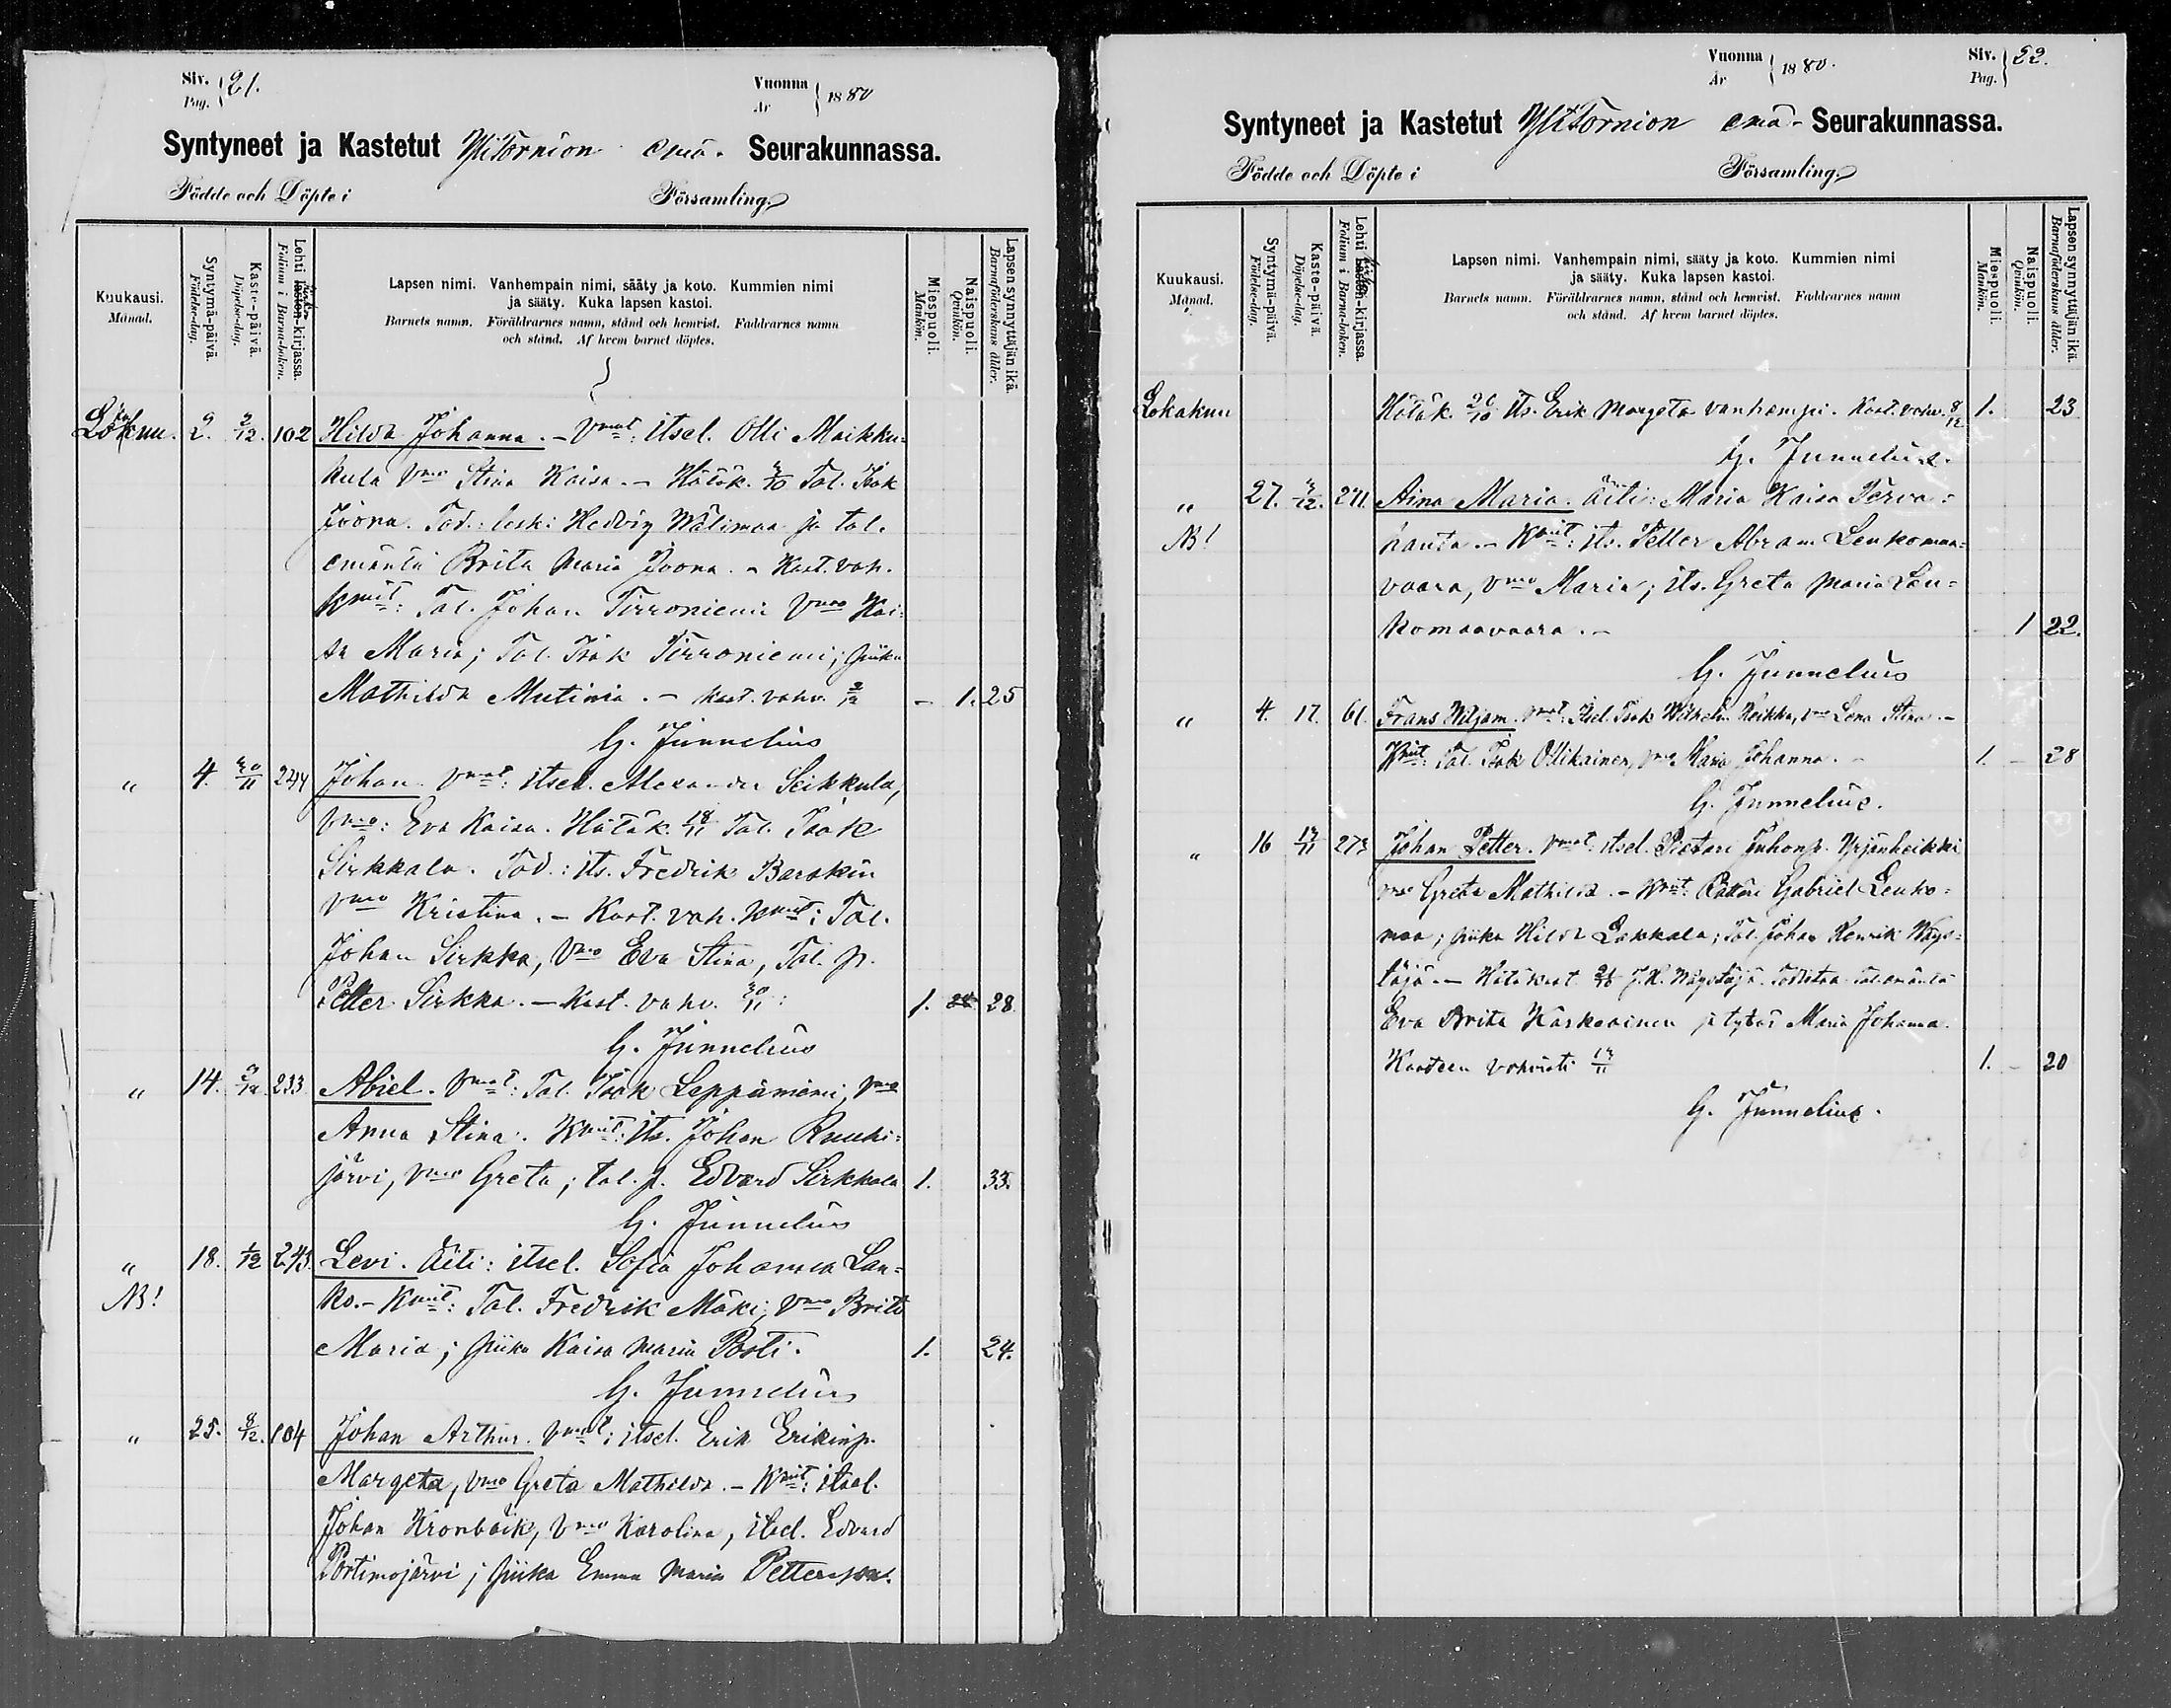 Siv. 21.
Pag.
Vuonna 1880
År
Syntyneet ja Kastetut YliTornion emä- Seurakunnassa.
Födde och Döpte i Församling.
Kuukausi.
Månad.
Syntymä-päivä.
Födelse-dag.
Kaste-päivä.
Döpelse-dag.
Lehti lasten-kirjassa.
Folium i Barna-boken.
Lapsen nimi. Vanhempain nimi, sääty ja koto. Kummien nimi
ja sääty. Kuka lapsen kastoi.
Barnets namn. Föräldrarnes namn, stånd och hemvist. Faddrarnes namn
och stånd. Af hvem barnet döptes.
Miespuoli.
Mankön.
Naispuoli.
Qvinkön.
Lapsensynnyttäjän ikä.
Barnaföderskans ålder.
2. 2/12. 102 Hilda Johanna. – Vmat: itsel. Olli Maikku-
kula Vmo Stina Kaisa. – Hätäk. Tal. Isak
Joona. Tod.: lesk: Hedvig Wälimaa ja tal.
emäntä Brita Maria Joona. – Kast. vah.
Kmit: Tal. Johan Tirroniemi Vmo Kai-
sa Maria; Tal. Isak Tirroniemi; piika
Mathilda Mutinia. – Kast. vahv. – 1. 25
G. Junnelius
" 4. 30/11 244 Johan. Vmat: itsel. Alexander Seikkula,
Vmo: Eva Kaisa. Hätäk. 18/11 Tal. Isak
Sirkkala. Tod.: its. Fredrik Barskin
Vmo Kristina. – Kast. vah. Kmit: Tal.
Johan Sirkka, Vmo Eva Stina, Tal. p.
Petter Sirkka. – Kast. vahv. 30/11: 1. 28.
G. Junnelius
" 14. 233 Abiel. Vmat: Tal. Isak Leppäniemi, Vmo
Anna Stina. Kmit: its. Johan Ruuhi-
järvi, Vmo Greta; tal. p. Edvard Sirkkala 1. 33.
G. Junnelius
" 18. 1/12 243. Levi. Äiti: itsel. Sofia Johanna Lan-
NB! ko. – Kmit: Tal. Fredrik Mäki, Vmo Brita
Maria; piika Kaisa Maria Posti. 1. 24.
G. Junnelius
" 25. 8/12. 104 Johan Arthur. Vmat: itsel. Erik Erikinp.
Margeta, Vmo Greta Mathilda. – Kmit: itsel.
Johan Kronbäck, Vmo Karolina, itsel. Edvard
Portimojärvi; piika Emma Maria
Vuonna 1880.
År
Siv. 22.
Pag.
Syntyneet ja Kastetut YliTornion emä- Seurakunnassa.
Födde och Döpte i Församling.
Kuukausi.
Månad.
Syntymä-päivä.
Födelse-dag.
Kaste-päivä.
Döpelse-dag.
Lehti lasten-kirjassa.
Folium i Barna-boken.
Lapsen nimi. Vanhempain nimi, sääty ja koto. Kummien nimi
ja sääty. Kuka lapsen kastoi.
Barnets namn. Föräldrarnes namn, stånd och hemvist. Faddrarnes namn
och stånd. Af hvem barnet döptes.
Miespuoli.
Mankön.
Naispuoli.
Qvinkön.
Lapsen synnyttäjän ikä.
Barnaföderskans ålder.
Lokakuu Hätäk. its. Erik Margeta vanhempi. Kast. vahv. 8/12 1. 23
G. Junnelius.
" 27. 271. Aina Maria. Äiti: Maria Kaisa Terva-
NB! hauta. – Kmit: its. Petter Abram Leukomaa-
vaara, Vmo Maria; its. Greta Maria Leu-
komaavaara. – 1 22.
G. Junnelius
" 4. 17. 61. Frans Wiljam. Vmat: Itsel. Isak Wilhelm Heikka, Vmo Lena Stina. –
Kmit: Tal. Isak Ollikainen, Vmo Maria Johanna. 1. – 28
G. Junnelius.
" 16 273 Johan Petter. Vmat: itsel. Pietari Juhonp. Yrjänheikki
Vmo Greta Mathilda. – Kmit: Gabriel Leuko-
maa; piika Hilda Lakkala; Tal. Johan Henrik Wäys-
täjä. – Hätäkast. J. H. Wäystäjä. Todistaa tal. emäntä
Eva Brita Karkeainen ja tytär Maria Johanna.
Kasteen vahvisti 1. – 20
G. Junnelius.